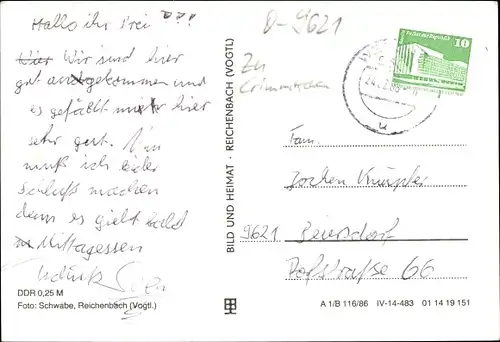 Hallo ihr drei !!!
Hier Wir sind hier
gut angekommen und
es gefällt mir hier
sehr gut. Nun
muß ich leider
schluß machen
denn es giebt bald
Mittagessen
D-9621
Zu
Crimmitschau
10
Fam.
Jochen Knüpfer
9621 Beiersdorf
Poststraße 66
BILD UND HEIMAT · REICHENBACH (VOGTL)
DDR 0,25 M
Foto: Schwabe, Reichenbach (Vogtl.)
A 1/B 116/86 IV-14-483 01 14 19 151